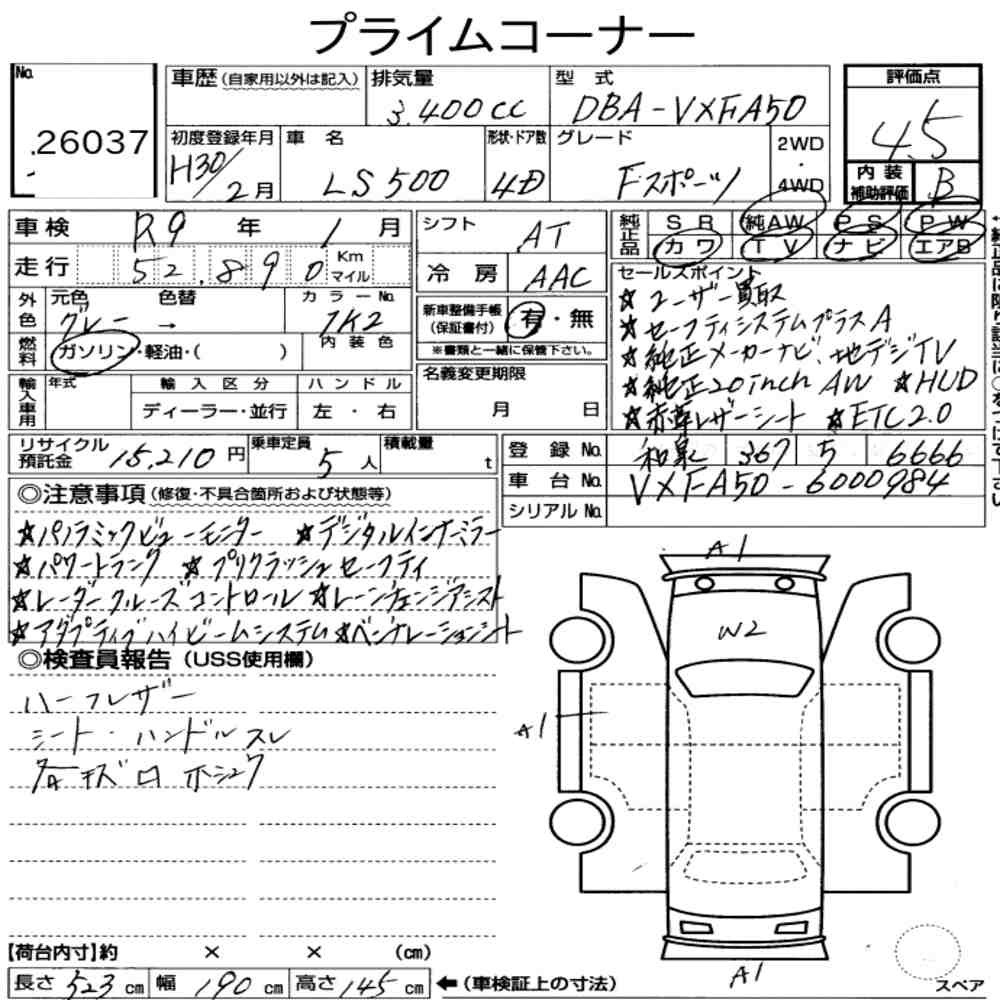 プライムコーナー
No. 26037
車歴(自家用以外は記入) 排気量 3.400cc 型式 DBA-VXFA50
初度登録年月 H30/2月 車名 LS500 形状・ドア数 4D グレード Fスポーツ 2WD・4WD
評価点 4.5
内装補助評価 B
車検 R9年 1月
走行 52.890 Km マイル
シフト AT
冷房 AAC
純正品 SR 純AW PS PW
カワ TV ナビ エアB
外色 元色 グレー → 色替 カラーNo. 1K2
内装色
燃料 ガソリン・軽油・( )
新車整備手帳(保証書付) 有・無
※書類と一緒に保管下さい。
輸入車用 年式 輸入区分 ハンドル
ディーラー・並行 左・右
名義変更期限 月 日
セールスポイント
☆ユーザー買取
☆セーフティシステムプラスA
☆純正メーカーナビ、地デジTV
☆純正20inch AW ☆HUD
☆赤革レザーシート ☆ETC2.0
リサイクル預託金 15,210円 乗車定員 5人 積載量 t
登録No. 和泉 367 5 6666
車台No. VXFA50-6000984
シリアルNo.
◎注意事項(修復・不具合箇所および状態等)
☆パノラミックビューモニター ☆デジタルインナーミラー
☆パワートランク ☆プリクラッシュセーフティ
☆レーダークルーズコントロール ☆レーンチェンジアシスト
☆アダプティブハイビームシステム ☆ベンチレーションシート
◎検査員報告(USS使用欄)
ハーフレザー
シート・ハンドルスレ
A1
W2
A1
A1
【荷台内寸】約 × × (cm)
長さ 523cm 幅 190cm 高さ 145cm ←(車検証上の寸法)
スペア